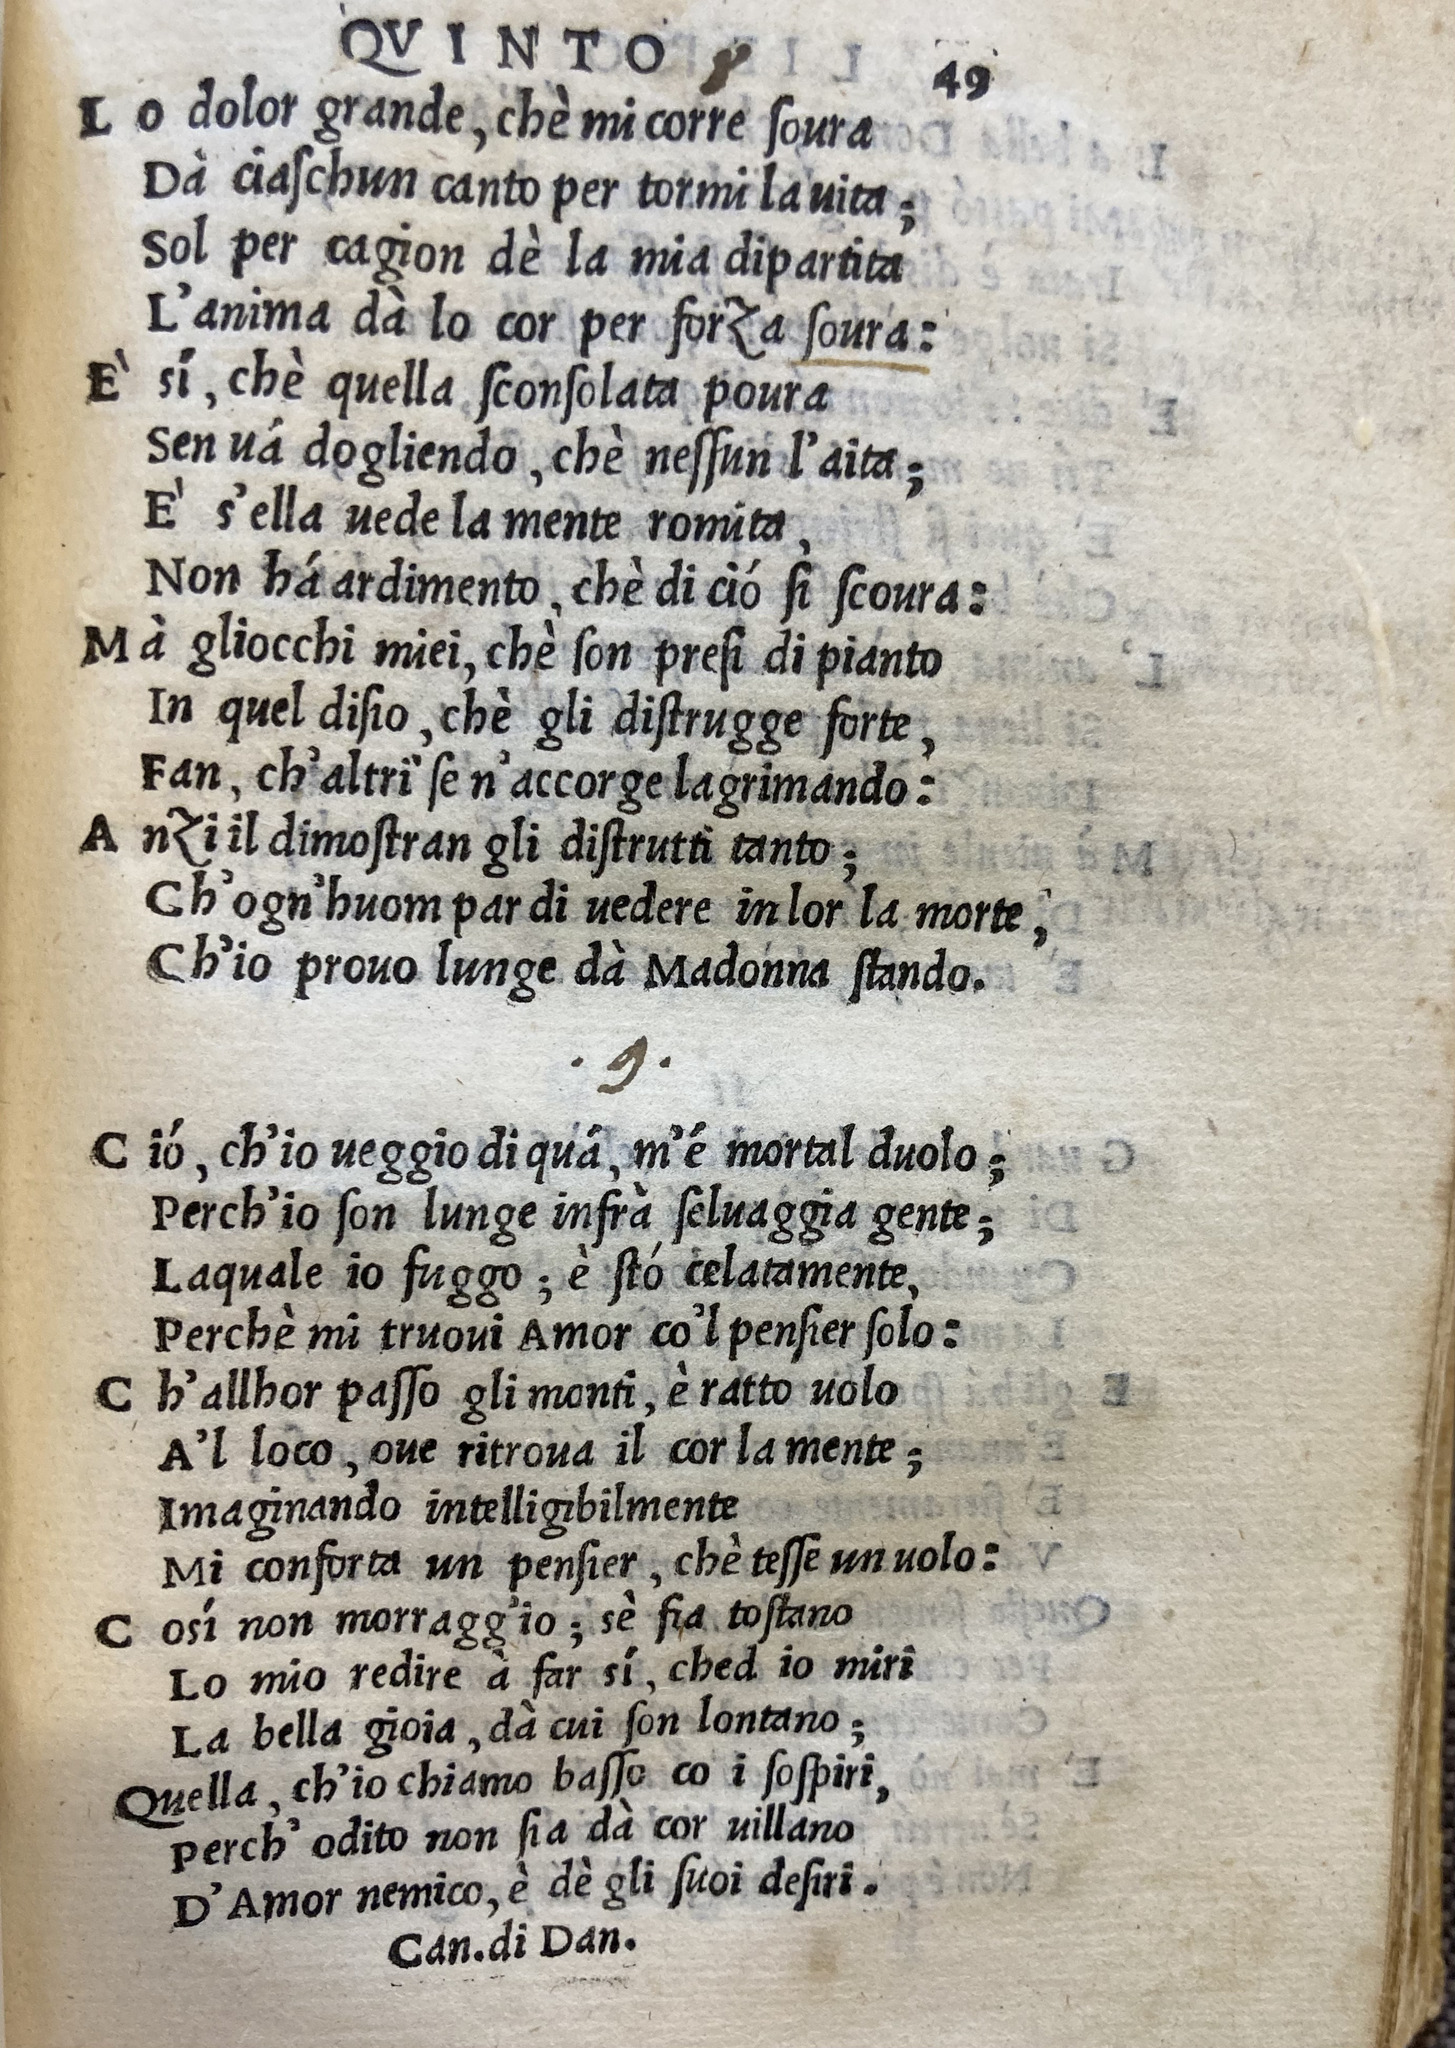 QVINTO
49
Lo dolor grande, chè mi corre ſoura
Dà ciaſchun canto per tormi la uita;
Sol per cagion dè la mia dipartita
L'anima dà lo cor per forza ſoura:
E' sí, chè quella ſconſolata poura
Sen uá dogliendo, chè neſſun l'aita;
E' s'ella uede la mente romita,
Non há ardimento, chè di ció ſi ſcoura:
Mà gliocchi miei, chè ſon preſi di pianto
In quel diſio, chè gli diſtrugge forte,
Fan, ch'altri ſe n'accorge lagrimando:
Anzi il dimoſtran gli diſtrutti tanto;
Ch'ogn'huom par di uedere in lor la morte,
Ch'io prouo lunge dà Madonna ſtando.
.9.
Ció, ch'io ueggio di quá, m'é mortal duolo;
Perch'io ſon lunge infrà ſeluaggia gente;
Laquale io fuggo; è ſtó celatamente,
Perchè mi truoui Amor co'l penſier ſolo:
Ch'allhor paſſo gli monti, è ratto uolo
A'l loco, oue ritroua il cor la mente;
Imaginando intelligibilmente
Mi conforta un penſier, chè teſſe un uolo:
Cosí non morragg'io; sè ſia toſtano
Lo mio redire à far sí, ched io miri
La bella gioia, dà cui ſon lontano;
Quella, ch'io chiamo baſſo co i ſoſpiri,
Perch' odito non ſia dà cor uillano
D'Amor nemico, è dè gli ſuoi deſiri.
Can. di Dan.